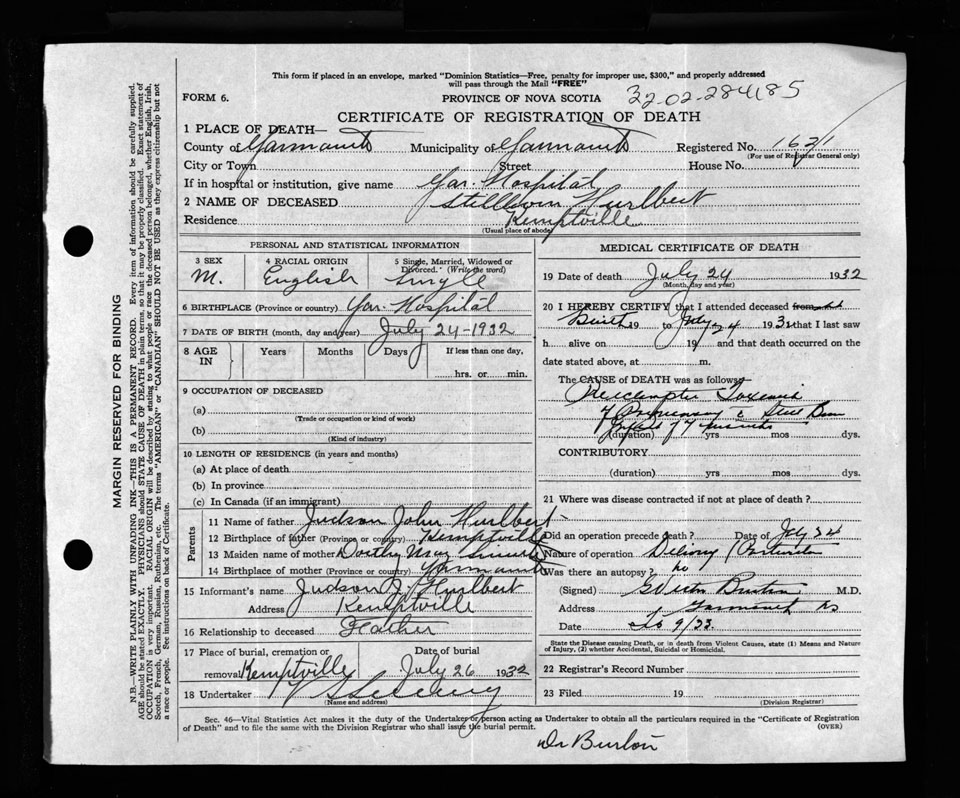 This form if placed in an envelope, marked "Dominion Statistics—Free, penalty for improper use, $300," and properly addressed
will pass through the Mail "FREE"
FORM 6.
PROVINCE OF NOVA SCOTIA
32-02-284185
CERTIFICATE OF REGISTRATION OF DEATH
1 PLACE OF DEATH—
County of Yarmouth Municipality of Yarmouth Registered No. 1621
(For use of Registrar General only)
City or Town Street House No.
If in hospital or institution, give name Yar. Hospital
2 NAME OF DECEASED Stillborn Hurlbert
Residence Kemptville
(Usual place of abode)
PERSONAL AND STATISTICAL INFORMATION
3 SEX 4 RACIAL ORIGIN 5 Single, Married, Widowed or
Divorced. (Write the word)
M. English Single
6 BIRTHPLACE (Province or country) Yar. Hospital
7 DATE OF BIRTH (month, day and year) July 24-1932
8 AGE IN Years Months Days If less than one day,
hrs. or min.
9 OCCUPATION OF DECEASED
(a)
(Trade or occupation or kind of work)
(b)
(Kind of industry)
10 LENGTH OF RESIDENCE (in years and months)
(a) At place of death
(b) In province
(c) In Canada (if an immigrant)
Parents
11 Name of father Judson John Hurlbert
12 Birthplace of father (Province or country) Kemptville
13 Maiden name of mother May
14 Birthplace of mother (Province or country) Yarmouth
15 Informant's name Judson J. Hurlbert
Address Kemptville
16 Relationship to deceased Father
17 Place of burial, cremation or Date of burial
removal Kemptville July 26 1932
18 Undertaker
(Name and address)
MEDICAL CERTIFICATE OF DEATH
19 Date of death July 24 1932
(Month, day and year)
20 I HEREBY CERTIFY that I attended deceased from
Birth 19 to July 24 193 that I last saw
h alive on 19 and that death occurred on the
date stated above, at m.
The CAUSE of DEATH was as follows
Toxemia
of Pregnancy
(duration) yrs mos dys.
CONTRIBUTORY
(duration) yrs mos dys.
21 Where was disease contracted if not at place of death?
Did an operation precede death? Date of July 24
Nature of operation
Was there an autopsy? no
(Signed) M.D.
Address Yarmouth NS
Date
State the Disease causing Death, or in death from Violent Causes, state (1) Means and Nature
of Injury, (2) whether Accidental, Suicidal or Homicidal.
22 Registrar's Record Number
23 Filed 19
(Division Registrar)
Sec. 46—Vital Statistics Act makes it the duty of the Undertaker or person acting as Undertaker to obtain all the particulars required in the "Certificate of Registration
of Death" and to file the same with the Division Registrar who shall issue the burial permit.
(OVER)
Dr Burton
MARGIN RESERVED FOR BINDING
N.B.—WRITE PLAINLY WITH UNFADING INK—THIS IS A PERMANENT RECORD. Every item of information should be carefully supplied.
AGE should be stated EXACTLY. PHYSICIANS should STATE CAUSE OF DEATH in plain terms, so that it may be properly classified. Exact statement of
OCCUPATION is very important. RACIAL ORIGIN will be described by stating to what people or race the deceased person belonged, whether English, Irish,
Scotch, French, German, Russian, Ruthenian, etc. The terms "AMERICAN" or "CANADIAN" SHOULD NOT BE USED as they express citizenship but not
a race or people. See instructions on back of Certificate.